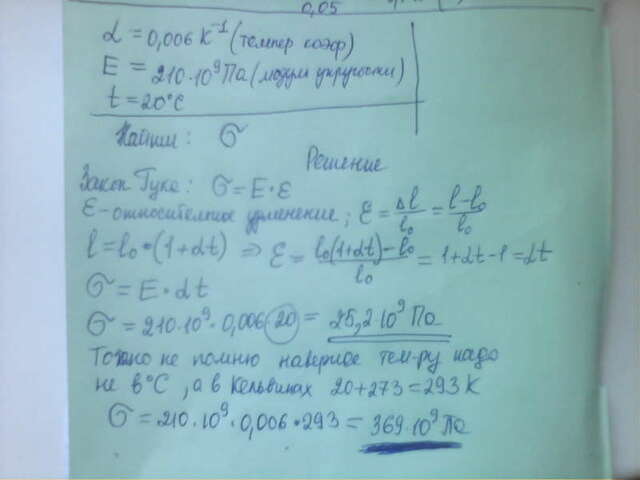 0,05
α = 0,006 K⁻¹ (темпер коэф)
E = 210·10⁹ Па (модуль упругости)
t = 20°C
Найти: σ
Решение
Закон Гука: σ = E·ε
ε - относителное удленение; ε = Δl/l₀ = l-l₀/l₀
l = l₀·(1+αt) ⇒ ε = l₀(1+αt)-l₀/l₀ = 1+αt-1 = αt
σ = E·αt
σ = 210·10⁹·0,006·20 = 25,2·10⁹ Па
Точно не помню наверное тем-ру надо
не в °C, а в Кельвинах 20+273=293 K
σ = 210·10⁹·0,006·293 = 369·10⁹ Па